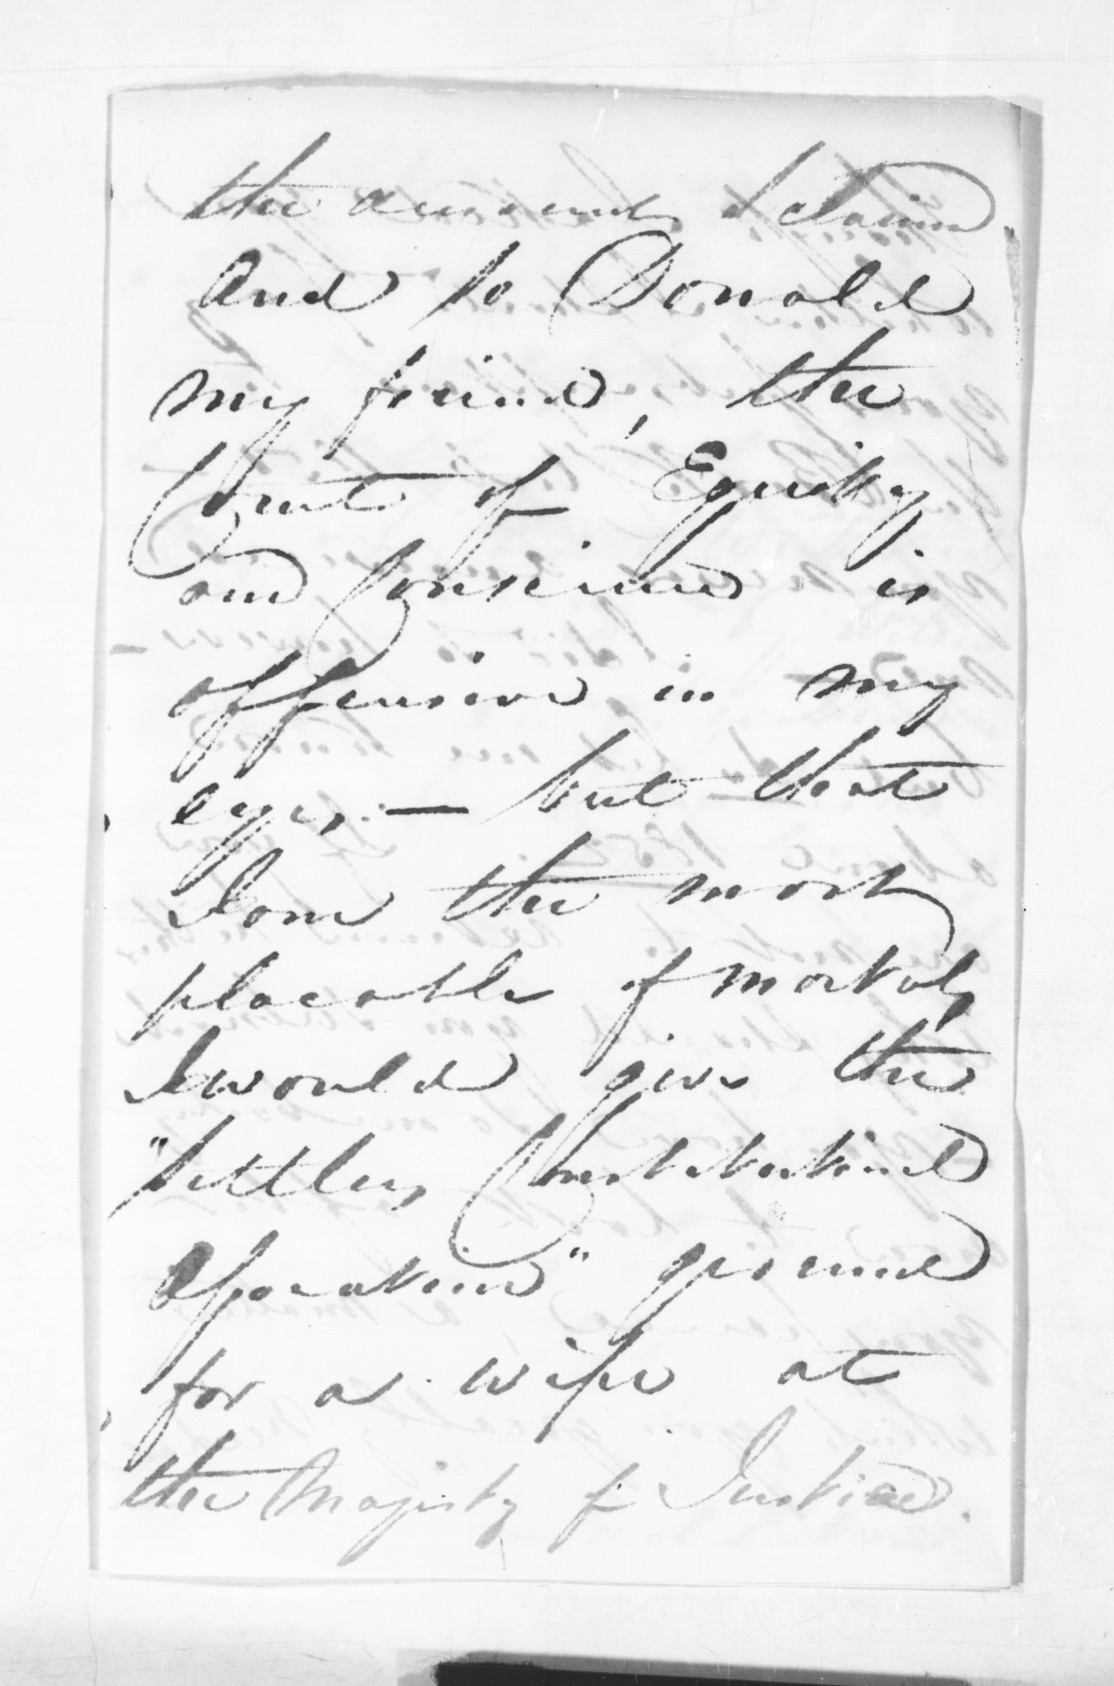 the amount I claim
And to Donald
my friend, the
Court of Equity
and Conscience is
offensive in my
eyes, — but that
I am the most
placable of mortals
I would give the
Constitutional
ground
for a wife at
the Majesty of Justice.